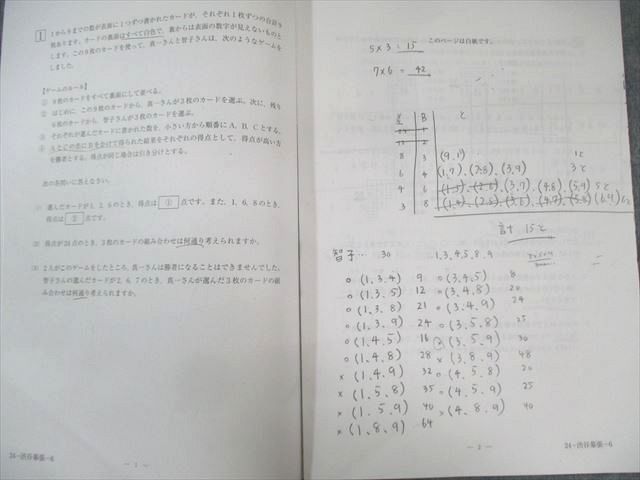 1
1から9までの数が表面に1つずつ書かれたカードが、それぞれ1枚ずつの合計9
枚あります。カードの裏面はすべて白色で、裏からは表面の数字が見えないものと
します。この9枚のカードを使って、真一さんと智子さんは、次のようなゲームを
しました。
【ゲームのルール】
① 9枚のカードをすべて裏面にして並べる。
② はじめに、この9枚のカードから、真一さんが3枚のカードを選ぶ。次に、残り
6枚のカードから、智子さんが3枚のカードを選ぶ。
③ それぞれが選んだカードに書かれた数を、小さい方から順番にA、B、Cとする。
④ AとCの差にBをかけて得られた結果をそれぞれの得点として、得点が高い方
を勝者とする。得点が同じ場合は引き分けとする。
次の各問いに答えなさい。
(1) 選んだカードが1、2、6のとき、得点は ① 点です。また、1、6、8のとき、
得点は ② 点です。
(2) 得点が24点のとき、3枚のカードの組み合わせは何通り考えられますか。
(3) 2人がこのゲームをしたところ、真一さんは勝者になることはできませんでした。
智子さんの選んだカードが2、6、7のとき、真一さんが選んだ3枚のカードの組
み合わせは何通り考えられますか。
24-渋谷幕張-6
- 1 -
このページは白紙です。
5×3 = 15
7×6 = 42
B
8 3 (9, 1)
6 4 (1,7)、(2,8)、(3,9)
4 6 (3,7)、(4,8)、(5,9)
3 8
計 15と
智子… 30 1,3,4,5,8,9
○ (1、3、4) 9 ○ (3,4,5) 8
○ (1、3、5) 12 ○ (3、4、8) 20
○ (1、3、8) 21 ○ (3、4、9) 24
○ (1、3、9) 24 ○ (3、5、8) 25
○ (1、4、5) 16 (3、5、9) 30
○ (1、4、8) 28 × (3、8、9) 48
× (1、4、9) 32 ○ (4、5、8) 20
× (1、5、8) 35 ○ (4、5、9) 25
× (1、5、9) 40 × (4、8、9) 40
× (1、8、9) 64
- 2 -
24-渋谷幕張-6